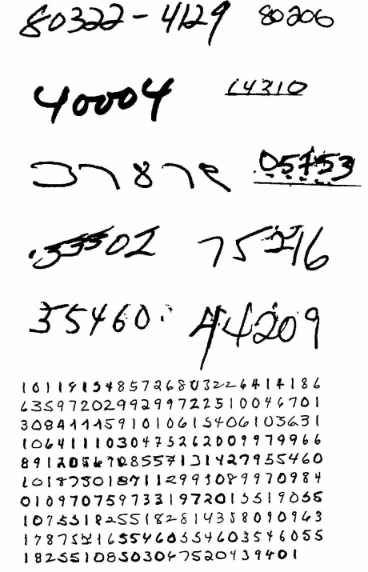 80322-4129 80206
40004 14310
37878 05753
.35502 75216
35460. 44209
1011915485726803226414186
6359720299299722510046701
3084111591010615406103631
1064111030475262009979966
8912056708557131427955460
1018730187112993089970984
0109707597331972015519055
1075518255182814358090963
1787521655460554603546055
18255108503047520439401